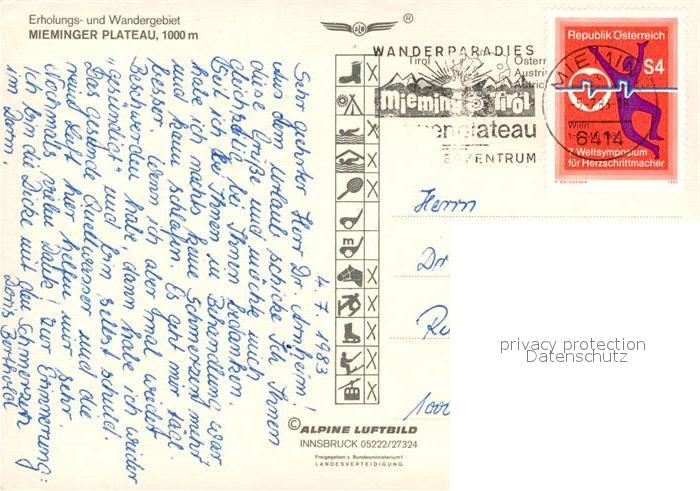 Erholungs- und Wandergebiet
MIEMINGER PLATEAU, 1000 m
ALB
®
WANDERPARADIES
Tirol
Österr
Austri
Mieming Tirol
enplateau
ZENTRUM
MIEMING
6414
Republik Österreich
S4
Wien
7. Weltsymposium
für Herzschrittmacher
1983
4.7.1983
Sehr geehrter Herr Dr. Arnheim!
Aus dem Urlaub schicke ich Ihnen
diese Grüße und möchte mich
bei Ihnen bedanken.
Bei Ihnen in Behandlung war
habe ich nachts keine Schmerzen mehr
und kann schlafen. Es geht mir tägl.
besser. Wenn ich aber 1mal wieder
Beschwerden habe, dann habe ich wieder
"gesündigt" und bin selbst schuld.
Das gesunde Quellwasser und die
reine Luft hier helfen mir sehr.
Nochmals vielen Dank! Zur Erinnerung:
ich bin die Dicke mit den Schmerzen
im Darm.
Doris Berthold
Herrn
Dr
1000
m
© ALPINE LUFTBILD
INNSBRUCK 05222/27324
Freigegeben v. Bundesministerium f.
LANDESVERTEIDIGUNG
privacy protection
Datenschutz